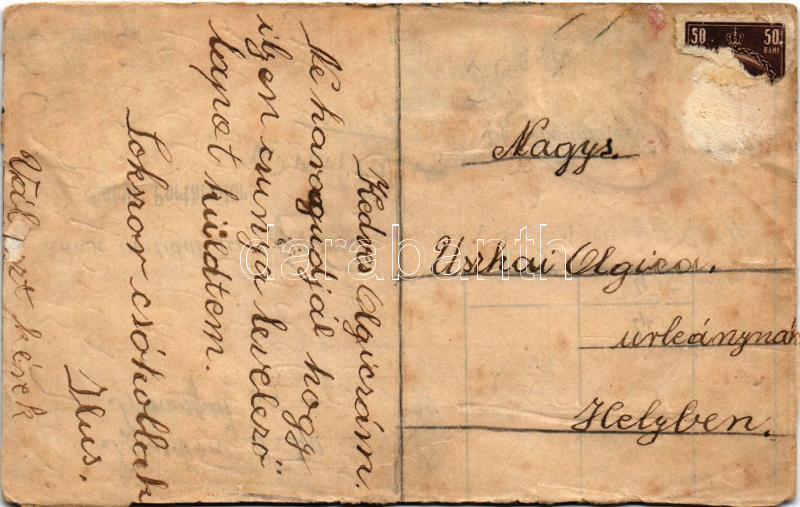 Kedves Olgicsám.
Ne haragudjál hogy
ilyen csunya levelező
lapot küldtem.
Sokszor csókollak
Ilus.
kérek
50 50
BANI
Nagys.
Uszkai Olgica.
urleánynak
Helyben.
darabanth.com